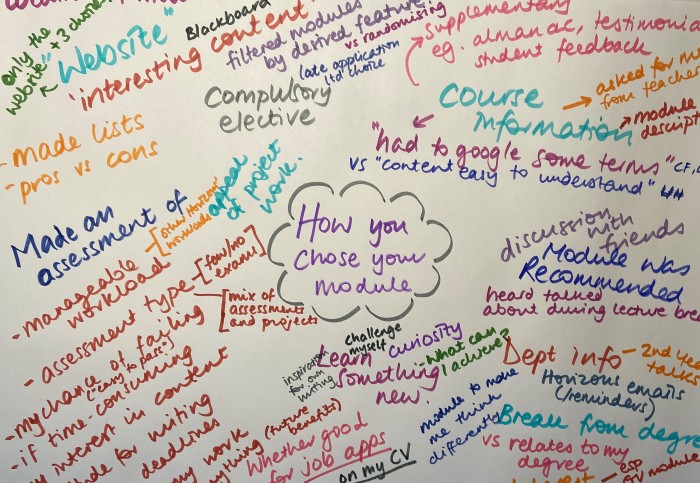 only the
website"
+ 3 chose
"Website"
"interesting content"
Blackboard
filtered modules
by desired feature
vs randomising
(late application
ltd choice
Compulsory
elective
Supplementary
eg. almanac, testimonia
student feedback
Course
Information
→ asked for
from teache
module
descript
"had to google some terms" CF,
vs "content easy to understand" LH
- made lists
- pros vs cons
appeal
of project
work.
Made an
assessment of
- manageable
workload
other Horizons
workloads
- assessment type
few/no
exams
mix of
assessments
and projects
- my chance of failing
("easy to pass")
- if time-consuming
interest in content
for writing
deadlines
my work
(future
benefits)
How you
chose your
module
discussion
with
friends
Module was
Recommended
heard talked
about during lecture brea
challenge
myself
inspiration
for own
writing
Learn curiosity
something
new!
- What can
I achieve?
module to make
me think
differently
Whether good
for job apps
on my CV
Dept info
- 2nd ye
talk
Horizons emails
(reminders)
Break from degre
vs relates to my
degree
esp
module